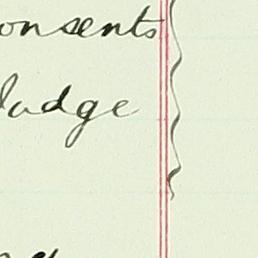 onsents
ludge